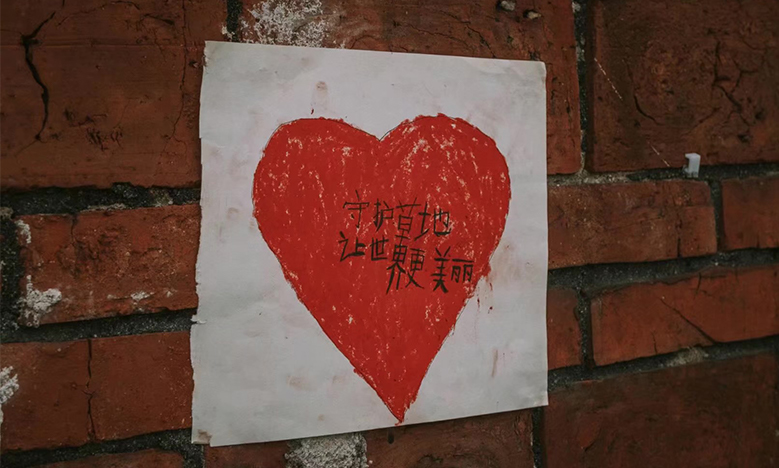 守护草地
让世界更美丽